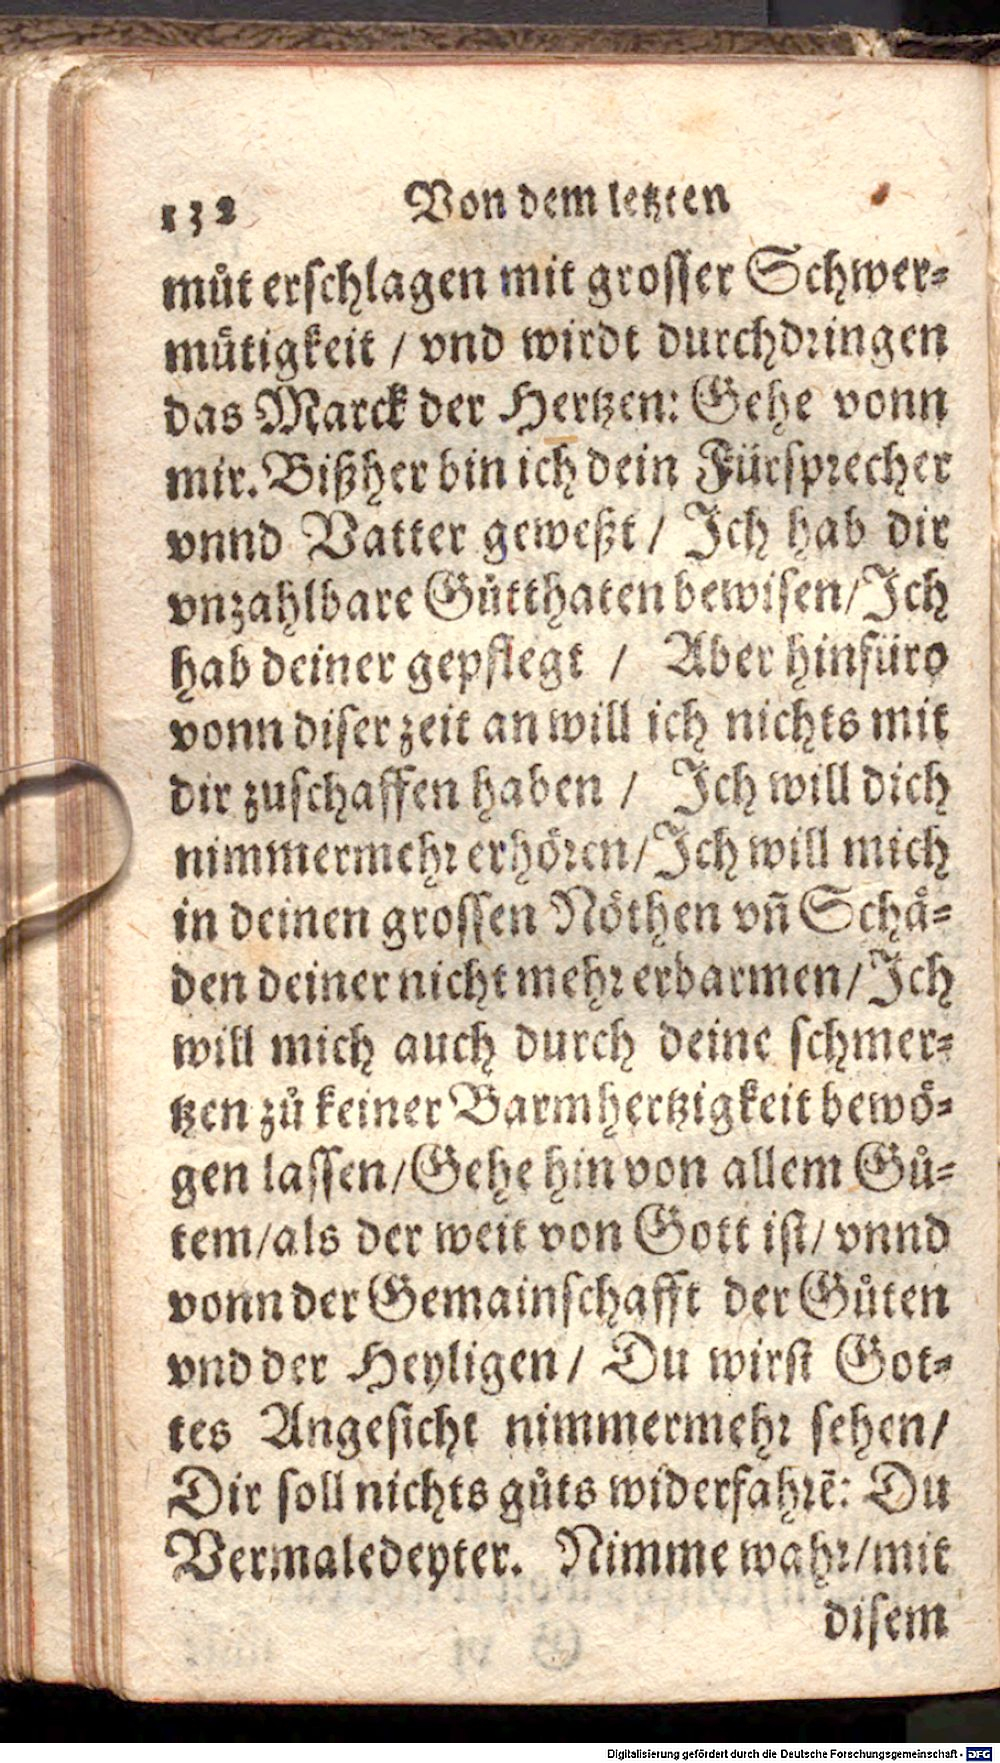 132 Von dem letzten
můt erschlagen mit grosser Schwer⸗
mütigkeit / vnd wirdt durchdringen
das Marck der Hertzen: Gehe vonn
mir. Bißher bin ich dein Fürsprecher
vnnd Vatter geweßt / Ich hab dir
vnzahlbare Gůtthaten bewisen / Ich
hab deiner gepflegt / Aber hinfüro
vonn diser zeit an will ich nichts mit
dir zuschaffen haben / Ich will dich
nimmermehr erhören / Ich will mich
in deinen grossen Nöthen vñ Schä⸗
den deiner nicht mehr erbarmen / Ich
will mich auch durch deine schmer⸗
tzen zů keiner Barmhertzigkeit bewö⸗
gen lassen / Gehe hin von allem Gů⸗
tem / als der weit von Gott ist / vnnd
vonn der Gemainschafft der Gůten
vnd der Heyligen / Du wirst Got⸗
tes Angesicht nimmermehr sehen /
Dir soll nichts gůts widerfahrē: Du
Vermaledeyter. Nimme wahr / mit
disem
Digitalisierung gefördert durch die Deutsche Forschungsgemeinschaft - DFG